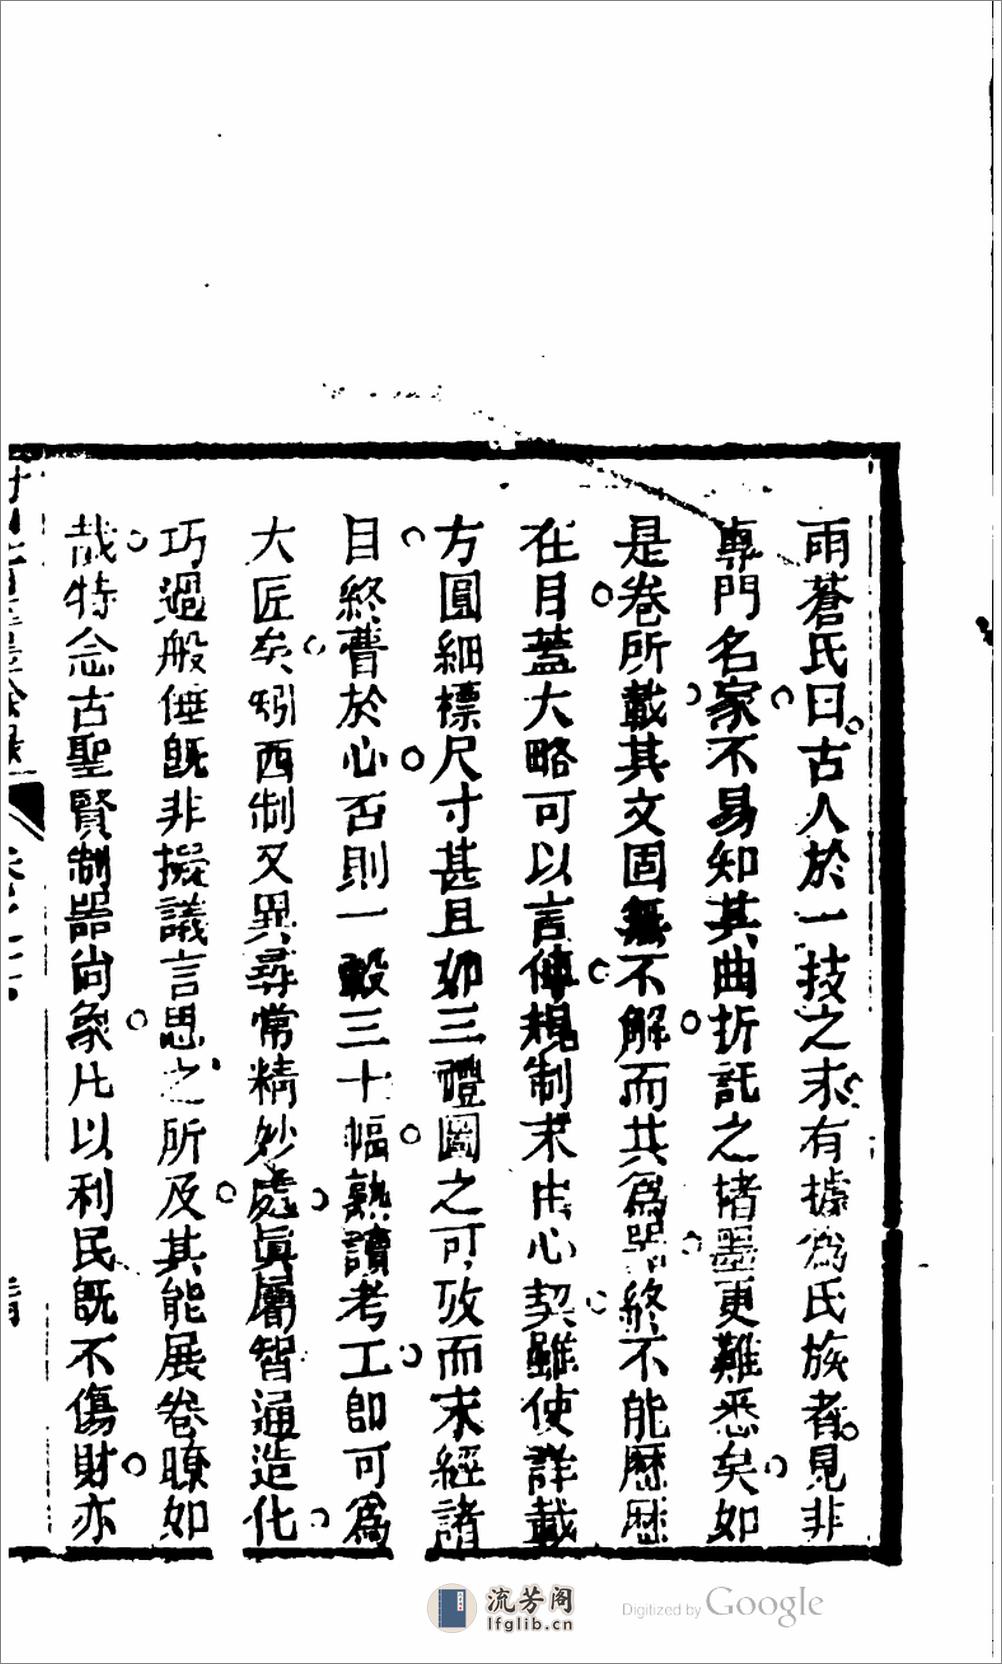 雨蒼氏曰古人於一技之末有據為氏族者見非
專門名家不易知其曲折託之楮墨更難悉矣如
是卷所載其文固無不解而其為器終不能歷歷
在目蓋大略可以言傳規制求由心契雖使詳載
方圓細標尺寸甚且如三禮圖之可攷而未經諸
目終瞢於心否則一轂三十幅熟讀考工即可為
大匠矣矧西制又異尋常精妙處眞層智通造化
巧過般倕既非擬議言思之所及其能展卷瞭如
哉特念古聖賢制器尚象凡以利民既不傷財亦
流芳阁
lfglib.cn
Digitized by Google